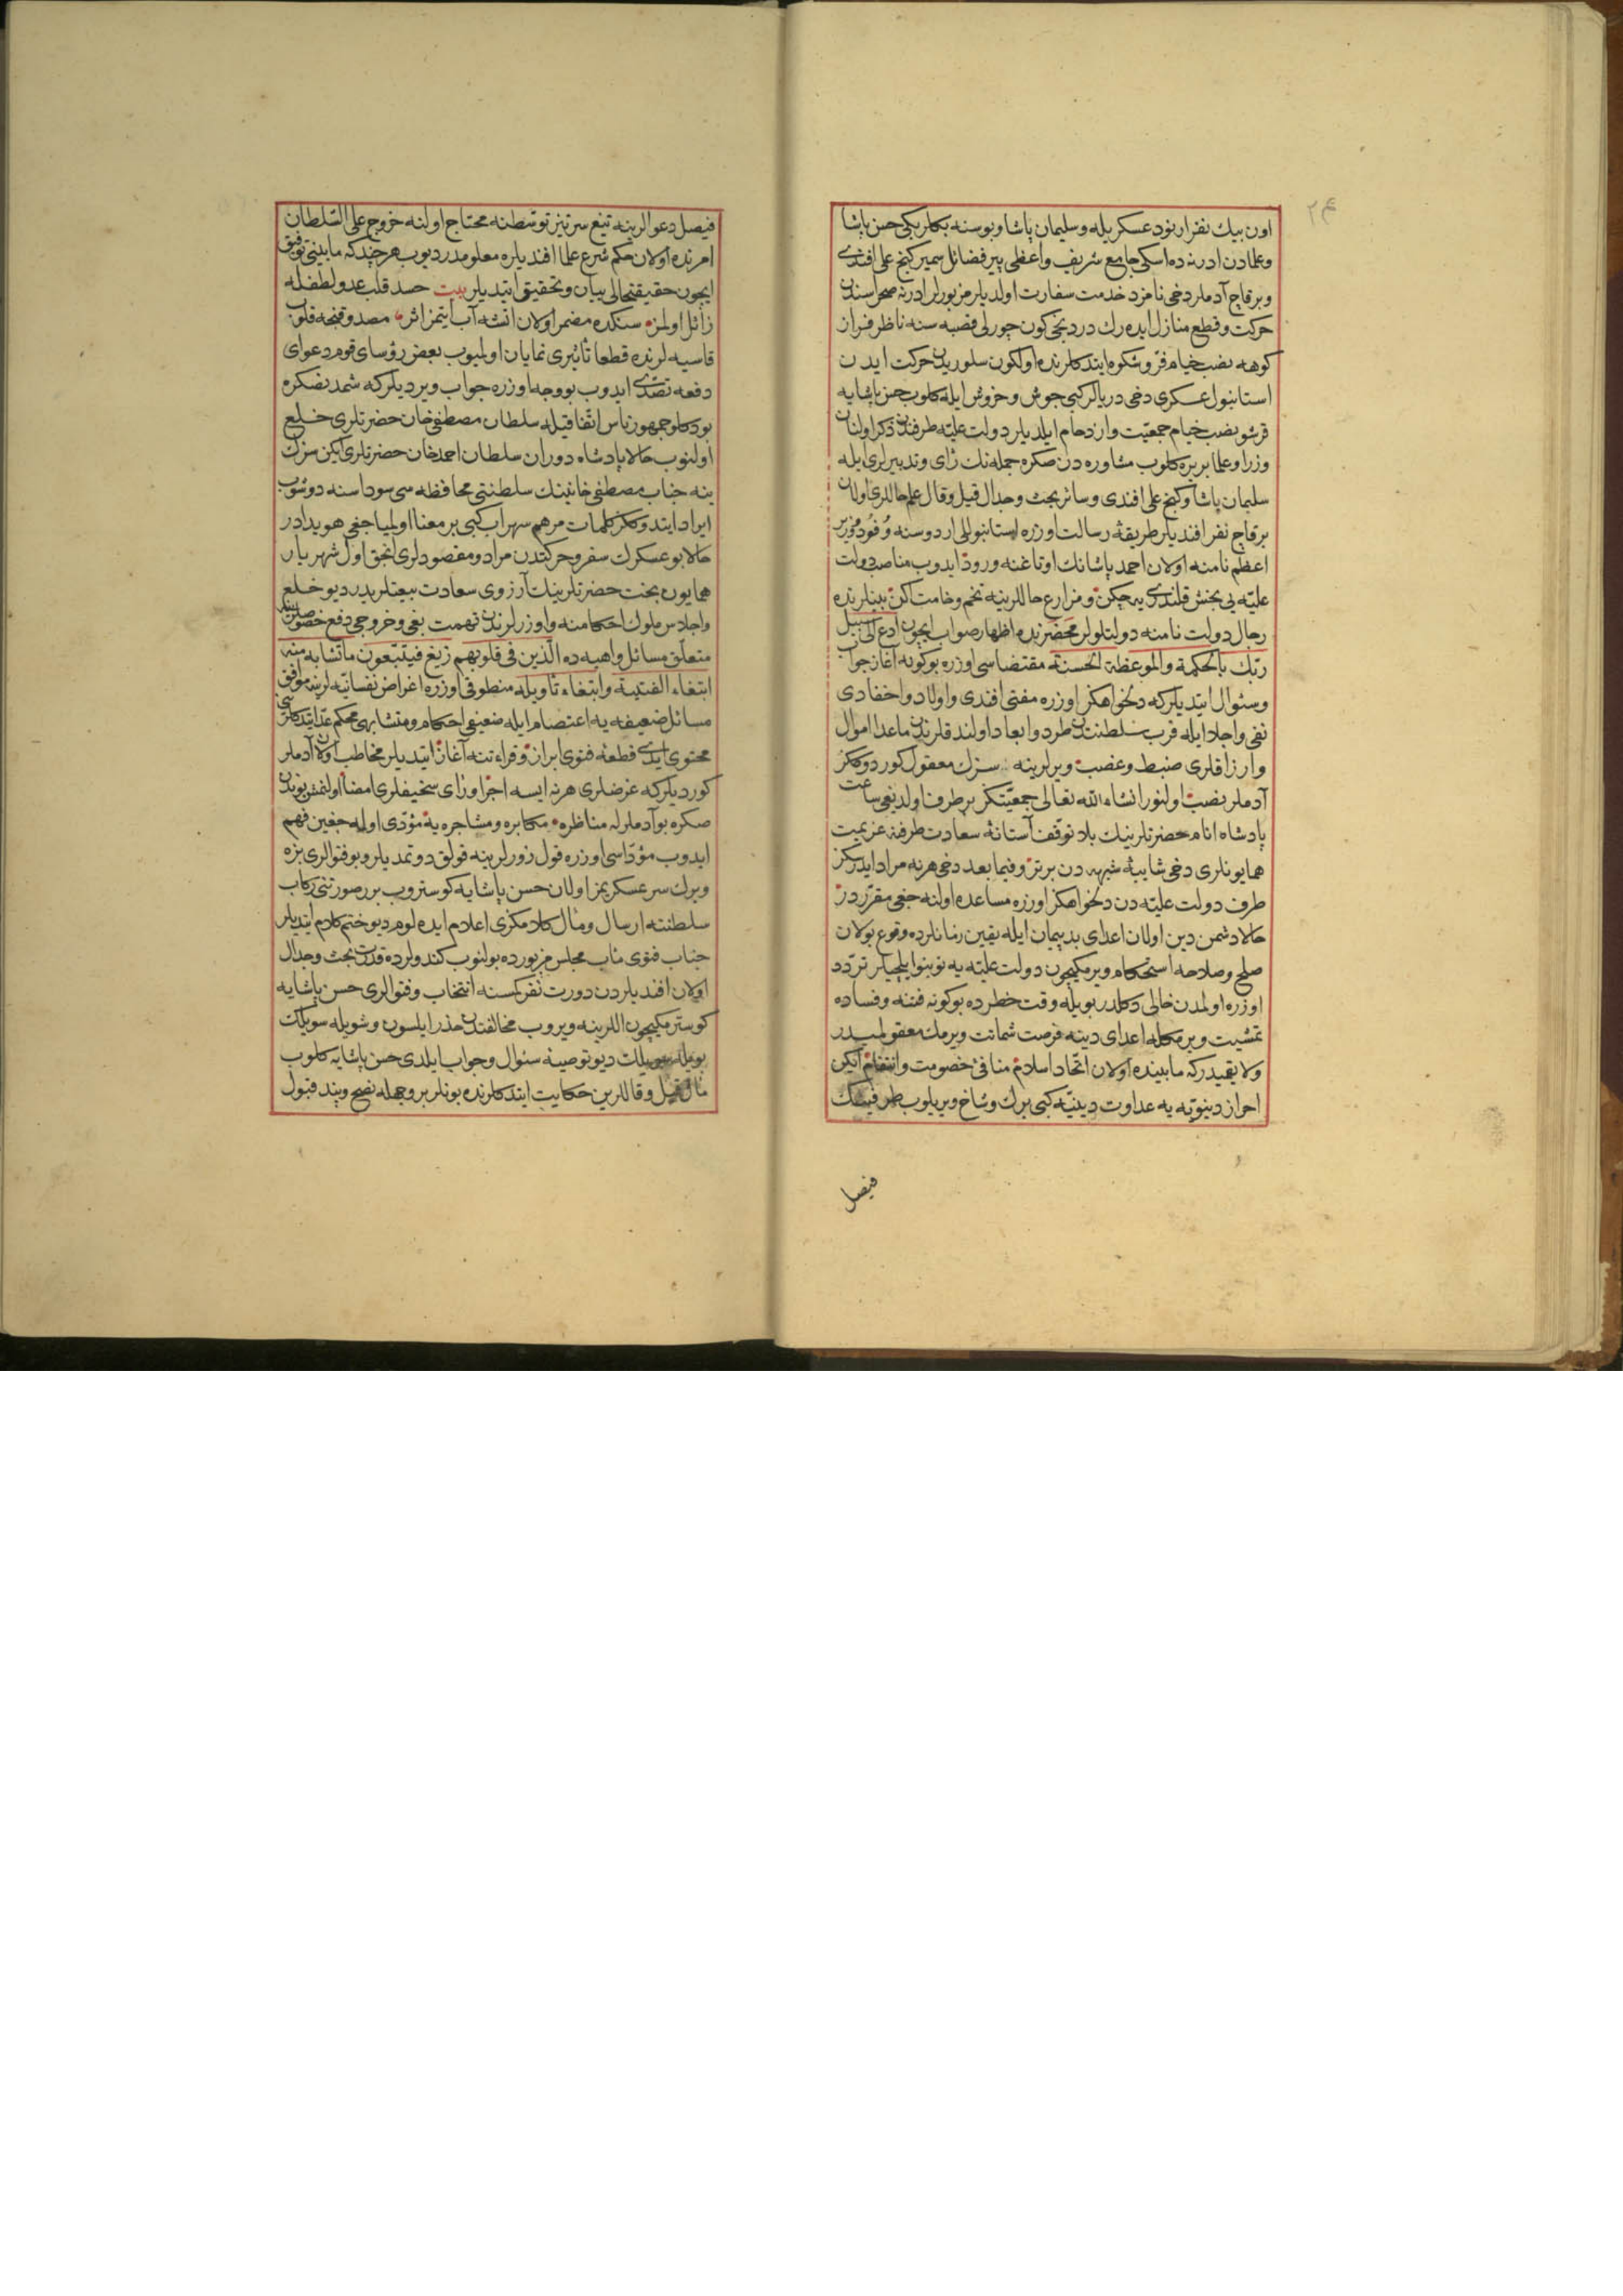 اون بيك نفر ارنود عسكريله وسليمان پاشا وبوسنه بكلربكى حسن پاشا
وعلمادن ادرنه ده اسكى جامع شريف واعظى پير فضائل سمير كنج على افندى
وبرقاج آدملر دخى نامزد خدمت سفارت اولديلر مزبورلر ادرنه صحراسندن
حركت وقطع منازل ايده رك دردنجى كون چورلى قصبه سنه ناظر فراز
كوهه نصب خيام فر وشكوه ايتدكلرنده اولكون سلوريدن حركت ايدن
استانبول عسكرى دخى دريالر كبى جوش وخروش ايله كلوب حسن پاشايه
قرشو نصب خيام جمعيت وازدحام ايلديلر دولت عليه طرفندن ذكر اولنان
وزرا وعلما بر يره كلوب مشاوره دن صكره جمله نك رأى وتدبيرلرى يله
سليمان پاشا وكنج على افندى وسائر بحث وجدال قيل وقال علم حاللرى اولان
برقاج نفر افنديلر طريقۀ رسالت اوزره استانبوللى اردوسنه وفود ووزير
اعظم نامنه اولان احمد پاشانك اوتاغنه ورود ايدوب مناصب دولت
عليه يى بخش قلندى يه چكن ومزارع حاللرينه تخم وخامت اكن بينلرنده
رجال دولت نامنه دولتلولر محضرنده اظهار صواب ايچون ادع الى سبيل
ربك بالحكمة والموعظة الحسنة مقتضاسى اوزره بوكونه آغاز جواب
وسئوال ايتديلر كه دلخواهكز اوزره مفتى افندى واولاد واحفادى
نفى واجلا ايله قرب سلطنتدن طرد وابعاد اولندقلرندن ماعدا اموال
وارزاقلرى ضبط وغصب ويرلرينه سزك معقول كوردوككز
آدملر نصب اولنور انشاء الله تعالى جمعيتكز برطرف اولديغى ساعت
پادشاه انام حضرتلرينك بلا توقف آستانۀ سعادت طرفنه عزيمت
همايونلرى دخى شايبۀ شبهه دن برتر وفيما بعد دخى هر نه مراد ايدركز
طرف دولت عليه دن دلخواهكز اوزره مساعده اولنه جغى مقرردر
حالا دشمن دين اولان اعداى بدپيمان ايله يقين زمانلرده وقوع بولان
صلح وصلاحه استحكام ويرمكيچون دولت عليه يه نوبنو ايلچيلر تردد
اوزره اولمدن خالى دكلدر بويله وقت خطرده بوكونه فتنه وفساده
تمشيت ويرمكله اعداى دينه فرصت شماتت ويرمك معقولميدر
ولايقميدركه مابينده اولان اتحاد اسلام منافئ خصومت وانتقام ايكن
احراز دنيويه يه عداوت دينيه كبى برك وشاخ ويريلوب طرفينك
فيصل
فيصل دعوالرينه تيغ سرتيز توسطنه محتاج اولنه خروج على السلطان
امرنده اولان حكم شرع علما افنديلره معلومدر ديوب هر چند كه مابينى توفيق
ايچون حقيقتحالى بيان وتحقيق ايتديلر بيت حسد قلب عدو لطفله
زائل اولمز سنكده مضمر اولان آتشه آب ايتمز اثر مصدوقنجه قلوب
قاسيه لرنده قطعا تأثيرى نمايان اولميوب بعض رؤساى قوم دعواى
دفعه تصدى ايدوب بووجه اوزره جواب ويرديلر كه شمدنصكره
بودكلو جمهور ناس اتفاقيله سلطان مصطفى خان حضرتلرى خلع
اولنوب حالا پادشاه دوران سلطان احمد خان حضرتلرى ايكن سزك
ينه جناب مصطفى خانينك سلطنتى محافظه سى سوداسنه دوشوب
ايراد ايتدوككز كلمات مرهم سهراب كبى بر معنا اولمياجغى هويدادر
حالا بو عسكرك سفر وحركتدن مراد ومقصودلرى انجق اول شهريار
همايون بخت حضرتلرينك آرزوى سعادت بيعتلريدر ديو خلع
واجلاس ملوك احكامنه واوزرلرندن تهمت بغى وخروجى دفع خصوصلرينه
متعلق مسائل واهيه ده الذين فى قلوبهم زيغ فيتبعون ما تشابه منه
ابتغاء الفتنة وابتغاء تأويله منطوقى اوزره اغراض نفسانيه لرينه موافق
مسائل ضعيفه يه اعتصام ايله ضعيفى احكام ومتشابهى محكم عد ايتدكلرينى
محتوى يدى قطعه فتوى ابراز وقراءتنه آغاز ايتديلر مخاطب اولان آدملر
كورديلر كه غرضلرى هر نه ايسه اجرا ورأى سخيفلرى امضا اولنمش بوندن
صكره بو آدملرله مناظره مكابره ومشاجره يه مؤدى اوله جغين فهم
ايدوب مؤداسى اوزره قول زورلرينه قولق دوتمديلر وبو فتوالرى بزه
ويرك سرعسكريمز اولان حسن پاشايه كوستروب بر صورتنى ركاب
سلطنته ارسال ومأل كلامكزى اعلام ايده لوم ديو ختم كلام ايتديلر
جناب فتوى مأب مجلس مزبورده بولنوب كندولرده قدرت بحث وجدال
اولان افنديلردن دورت نفر كمسنه انتخاب وفتوالرى حسن پاشايه
كوسترمكيچون اللرينه ويروب مخالفتدن حذر ايلسون وشويله سويلك
بويله سويلك ديو توصيۀ سئوال وجواب ايلدى حسن پاشايه كلوب
مأل قيل وقاللرين حكايت ايتدكلرنده بونلر بروجهله نصح وپند قبول